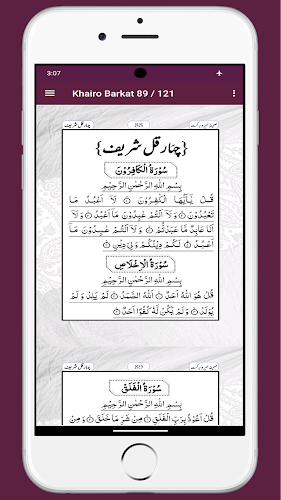 3:07
Khairo Barkat 89 / 121
چہار قل شریف
{چہار قل شریف}
سُوْرَةُ الْكَافِرُوْنَ
بِسْمِ اللّٰهِ الرَّحْمٰنِ الرَّحِيْمِ
قُلْ يٰٓاَيُّهَا الْكٰفِرُوْنَ ۝ لَآ اَعْبُدُ مَا
تَعْبُدُوْنَ ۝ وَلَآ اَنْتُمْ عٰبِدُوْنَ مَآ اَعْبُدُ ۝ وَلَآ
اَنَا عَابِدٌ مَّا عَبَدْتُّمْ ۝ وَلَآ اَنْتُمْ عٰبِدُوْنَ مَآ
اَعْبُدُ ۝ لَكُمْ دِيْنُكُمْ وَلِيَ دِيْنِ ۝
سُوْرَةُ الْاِخْلَاصِ
بِسْمِ اللّٰهِ الرَّحْمٰنِ الرَّحِيْمِ
قُلْ هُوَ اللّٰهُ اَحَدٌ ۝ اَللّٰهُ الصَّمَدُ ۝ لَمْ يَلِدْ وَلَمْ
يُوْلَدْ ۝ وَلَمْ يَكُنْ لَّهٗ كُفُوًا اَحَدٌ ۝
چہار قل شریف
سُوْرَةُ الْفَلَقِ
بِسْمِ اللّٰهِ الرَّحْمٰنِ الرَّحِيْمِ
قُلْ اَعُوْذُ بِرَبِّ الْفَلَقِ ۝ مِنْ شَرِّ مَا خَلَقَ ۝ وَ مِنْ